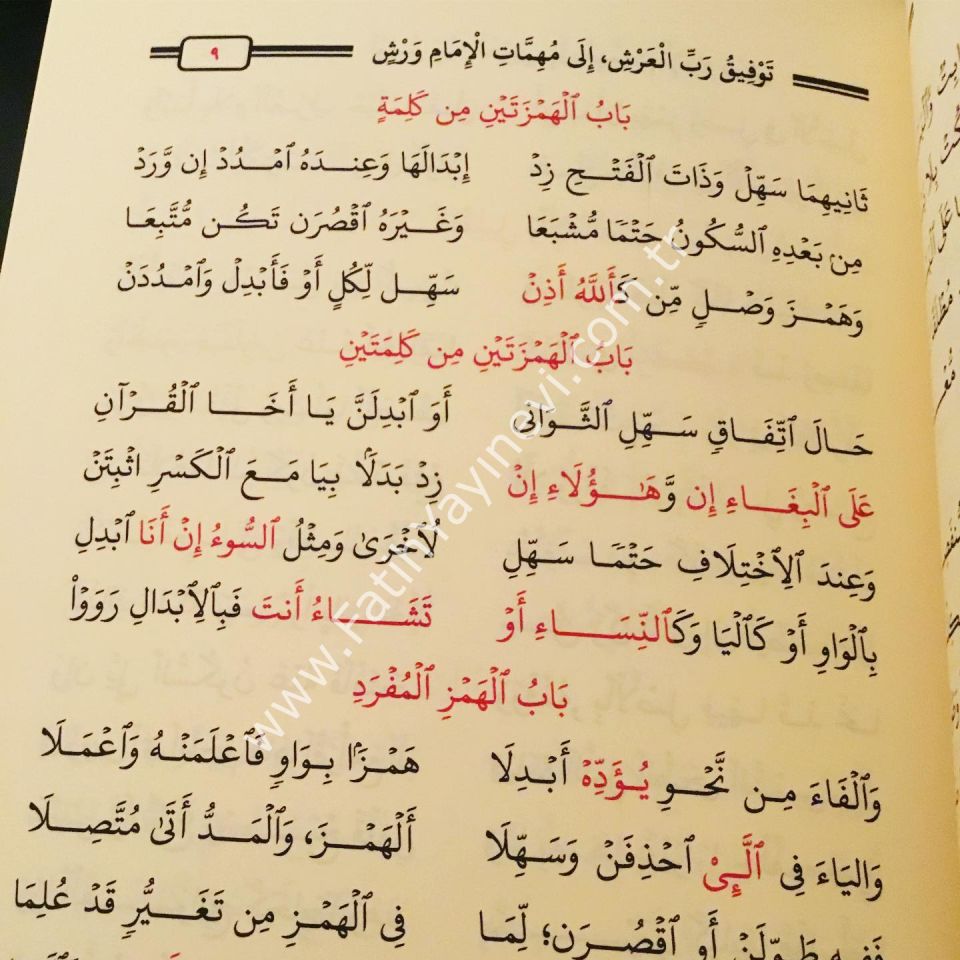 تَوْفِيقُ رَبِّ الْعَرْشِ، إِلَى مُهِمَّاتِ الْإِمَامِ وَرْشِ ٩
بَابُ الْهَمْزَتَيْنِ مِن كَلِمَةٍ
ثَانِيهِمَا سَهِّلْ وَذَاتَ الْفَتْحِ زِدْ إِبْدَالَهَا وَعِندَهُ امْدُدْ إِن وَّرَدْ
مِن بَعْدِهِ السُّكُونُ حَتْمًا مُّشْبَعَا وَغَيْرَهُ اقْصُرَن تَكُن مُتَّبِعَا
وَهَمْزَ وَصْلٍ مِّن كَأَللَّهُ أَذِنْ سَهِّل لِّكُلٍ أَوْ فَأَبْدِل وَامْدُدَنْ
بَابُ الْهَمْزَتَيْنِ مِن كَلِمَتَيْنِ
حَالَ اتِّفَاقٍ سَهِّلِ الثَّوَانِي أَوَ ابْدِلَنَّ يَا أَخَا الْقُرْآنِ
عَلَى الْبِغَاءِ إِن وَّهَؤُلَاءِ إِنْ زِدْ بَدَلًا بِيَا مَعَ الْكَسْرِ اثْبِتَنْ
وَعِندَ الِاخْتِلَافِ حَتْمًا سَهِّلِ لُاخْرَىٰ وَمِثْلُ السُّوءُ إِنْ أَنَا ابْدِلِ
بِالْوَاوِ أَوْ كَالْيَا وَكَالنِّسَاءِ أَوْ تَشَاءُ أَنتَ فَبِالِابْدَالِ رَوَوْا
بَابُ الْهَمْزِ الْمُفْرَدِ
وَالْفَاءَ مِن نَّحْوِ يُؤَدِّهْ أَبْدِلَا هَمْزًا بِوَاوٍ فَاعْلَمَنْهُ وَاعْمَلَا
وَاليَاءَ فِي الَّٰئِي احْذِفَنْ وَسَهِّلَا أَلْهَمْزَ، وَالْمَدُّ أَتَىٰ مُتَّصِلَا
طَوِّلَنْ أَوِ اقْصُرَن؛ لِمَا فِي الْهَمْزِ مِن تَغَيُّرٍ قَدْ عُلِمَا
www.Fatihyayinevi.com.tr